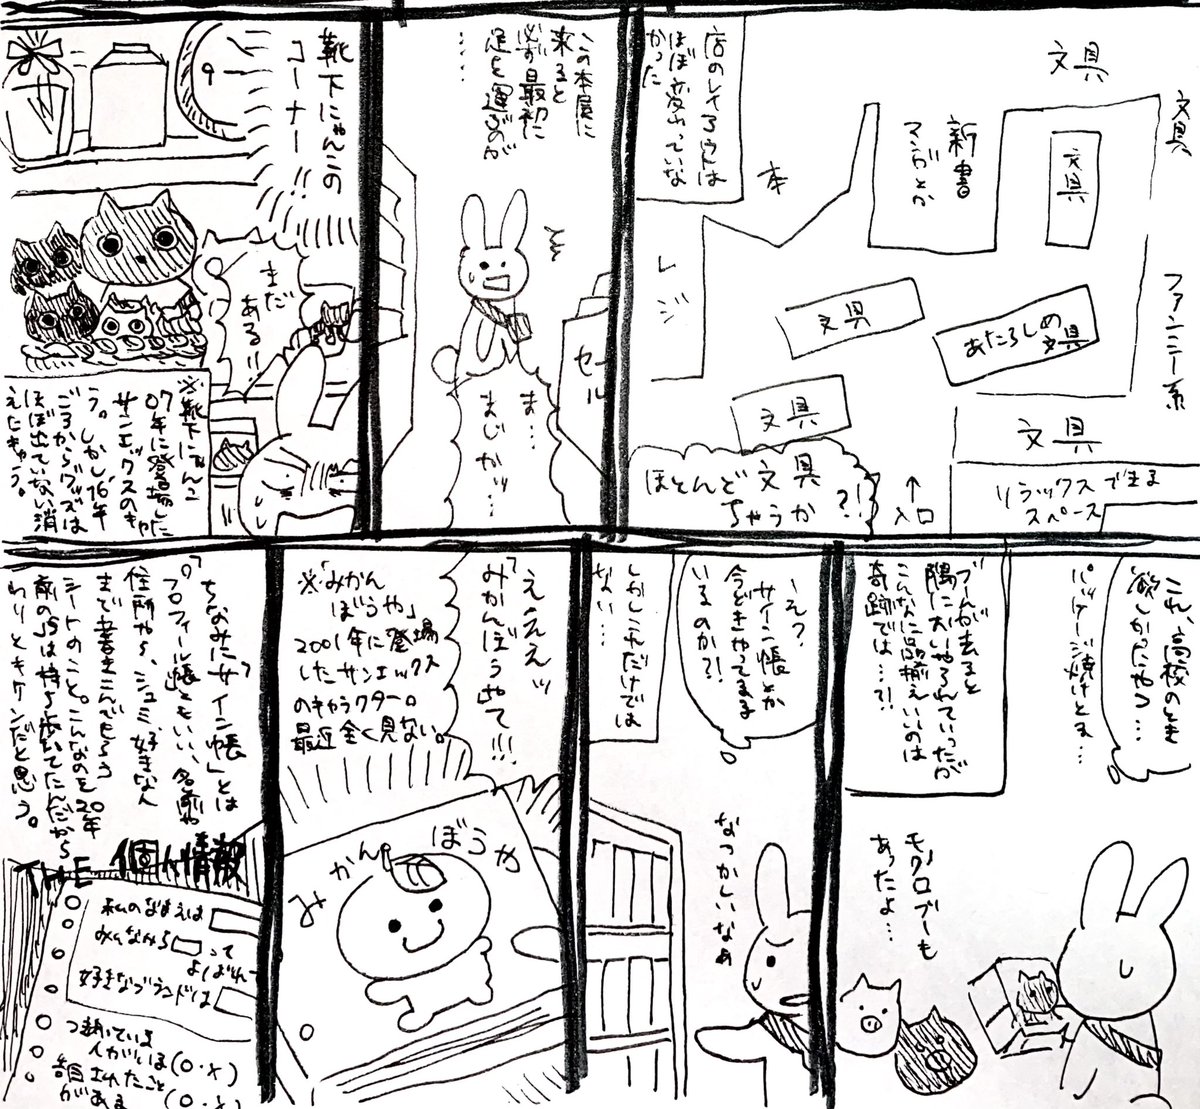 文具
文具
文具
新書
マンガとか
本
店のレイアウトは
ほぼ変わっていな
かった
レジ
文具
あたらしめ
文具
ファンシー系
文具
文具
リラックスできる
スペース
↑
入口
ほとんど文具
ちゃうか?!
この本屋に
来ると
必ず最初に
足を運ぶのが
……
セール
ま…
まじかッ…
靴下にゃんこの
コーナー!!
9
まだ
ある!!
※靴下にゃんこ
07年に登場した
サンエックスのキャ
ラ。しかし'16年
ごろからグッズは
ほぼ出ていない消
えたキャラ。
これ、高校のとき
欲しかったやつ…
パッケージ焼けとる…
ブームが去ると
隅においやられていったが
こんなに品揃えいいのは
奇跡では…?!
モノクロブーも
あったよ…
え?
サイン帳とか
今どきやってる子
いるのか?!
しかしこれだけでは
ない…
なつかしいなぁ
えええッ
「みかんぼうや」て!!!
※「みかん
ぼうや」
2001年に登場
したサンエックス
のキャラクター。
最近全く見ない。
みかんぼうや
ちなみに「サイン帳」とは
「プロフィール帳」ともいい、名前や
住所やら、シュミ、好きな人
まで書きこんでもらう
シートのこと。こんなのを20年
前のJSは持ち歩いてたんだから
わりとキケンだと思う。
THE 個人情報
私のなまえは
みんなから□って
よばれ
好きなブランドは
つきあっている
人がいる(○・×)
告白されたこと
がある(○・×)